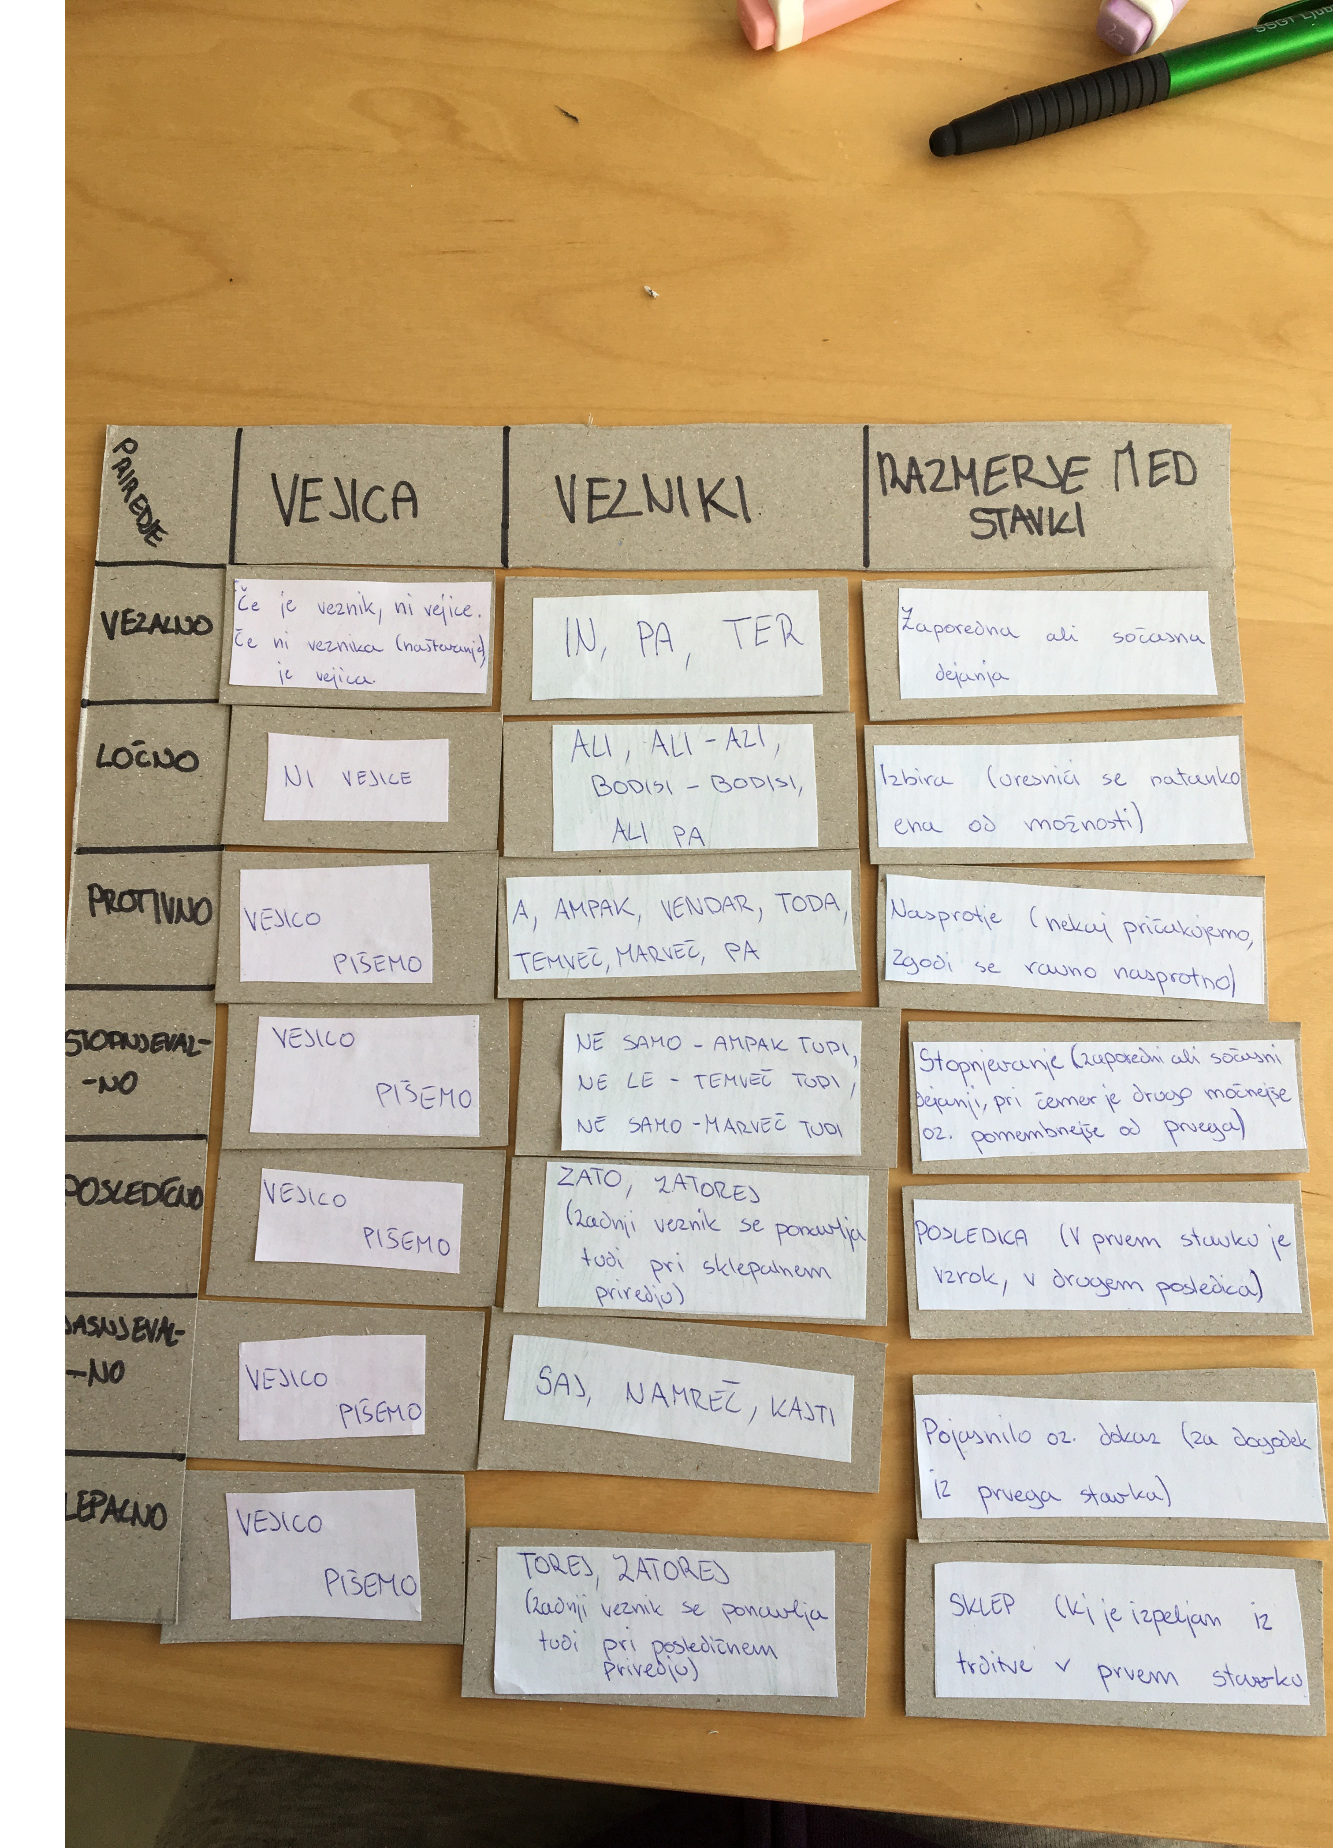 SSGT Ljub
PRIREDJE
VEJICA
VEZNIKI
RAZMERJE MED
STAVKI
VEZALNO
Če je veznik, ni vejice.
Če ni veznika (naštevanje)
je vejica.
IN, PA, TER
Zaporedna ali sočasna
dejanja
LOČNO
NI VEJICE
ALI, ALI - ALI,
BODISI - BODISI,
ALI PA
Izbira (uresniči se natanko
ena od možnosti)
PROTIVNO
VEJICO
PIŠEMO
A, AMPAK, VENDAR, TODA,
TEMVEČ, MARVEČ, PA
Nasprotje (nekaj pričakujemo,
zgodi se ravno nasprotno)
STOPNJEVAL-
-NO
VEJICO
PIŠEMO
NE SAMO - AMPAK TUDI,
NE LE - TEMVEČ TUDI,
NE SAMO - MARVEČ TUDI
Stopnjevanje (zaporedni ali sočasni
dejanji, pri čemer je drugo močnejše
oz. pomembnejše od prvega)
POSLEDIČNO
VEJICO
PIŠEMO
ZATO, ZATOREJ
(zadnji veznik se ponavlja
tudi pri sklepalnem
priredju)
POSLEDICA (V prvem stavku je
vzrok, v drugem posledica)
JASNJEVAL-
-NO
VEJICO
PIŠEMO
SAJ, NAMREČ, KAJTI
Pojasnilo oz. dokaz (za dogodek
iz prvega stavka)
LEPALNO
VEJICO
PIŠEMO
TOREJ, ZATOREJ
(zadnji veznik se ponavlja
tudi pri posledičnem
priredju)
SKLEP (ki je izpeljan iz
trditve v prvem stavku